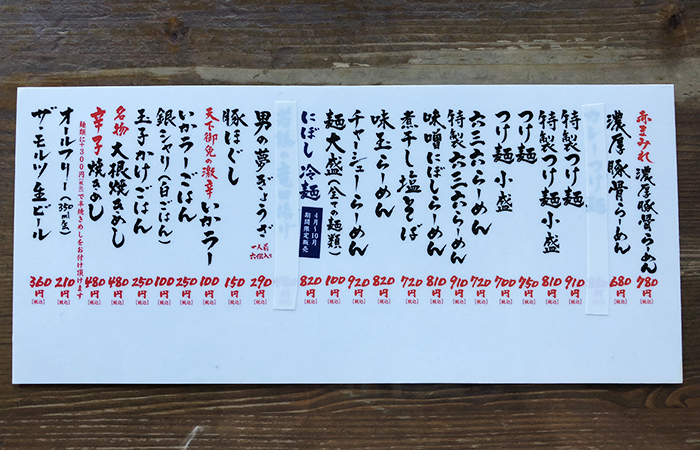 赤まみれ 濃厚豚骨らーめん 780円[税込]
濃厚豚骨らーめん 680円[税込]
特製つけ麺 910円[税込]
特製つけ麺 小盛 810円[税込]
つけ麺 750円[税込]
つけ麺 小盛 700円[税込]
六三六らーめん 720円[税込]
特製六三六らーめん 910円[税込]
味噌にぼしらーめん 810円[税込]
煮干し塩そば 720円[税込]
味玉らーめん 820円[税込]
チャーシューらーめん 920円[税込]
麺大盛(全ての麺類) 100円[税込]
にぼし冷麺 4月〜10月 期間限定販売 820円[税込]
男の夢ぎょうざ 一人前 六個入り 290円[税込]
豚ほぐし 150円[税込]
天下御免の激辛 いかラー 100円[税込]
いかラーごはん 250円[税込]
銀シャリ(白ごはん) 100円[税込]
玉子かけごはん 250円[税込]
名物 大根焼きめし 480円[税込]
辛子焼きめし 480円[税込]
麺類に+300円[税込]で半焼きめしをお付け頂けます
オールフリー(350ml缶) 210円[税込]
ザ・モルツ生ビール 360円[税込]